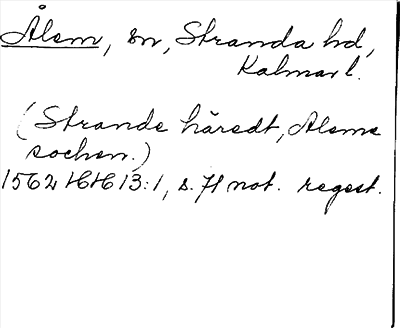 Ålem, sn, Stranda hd,
Kalmar l.
(Strande häredt, Aleme
sochen.)
1562 HH 13:1, s. 71 not. regest.